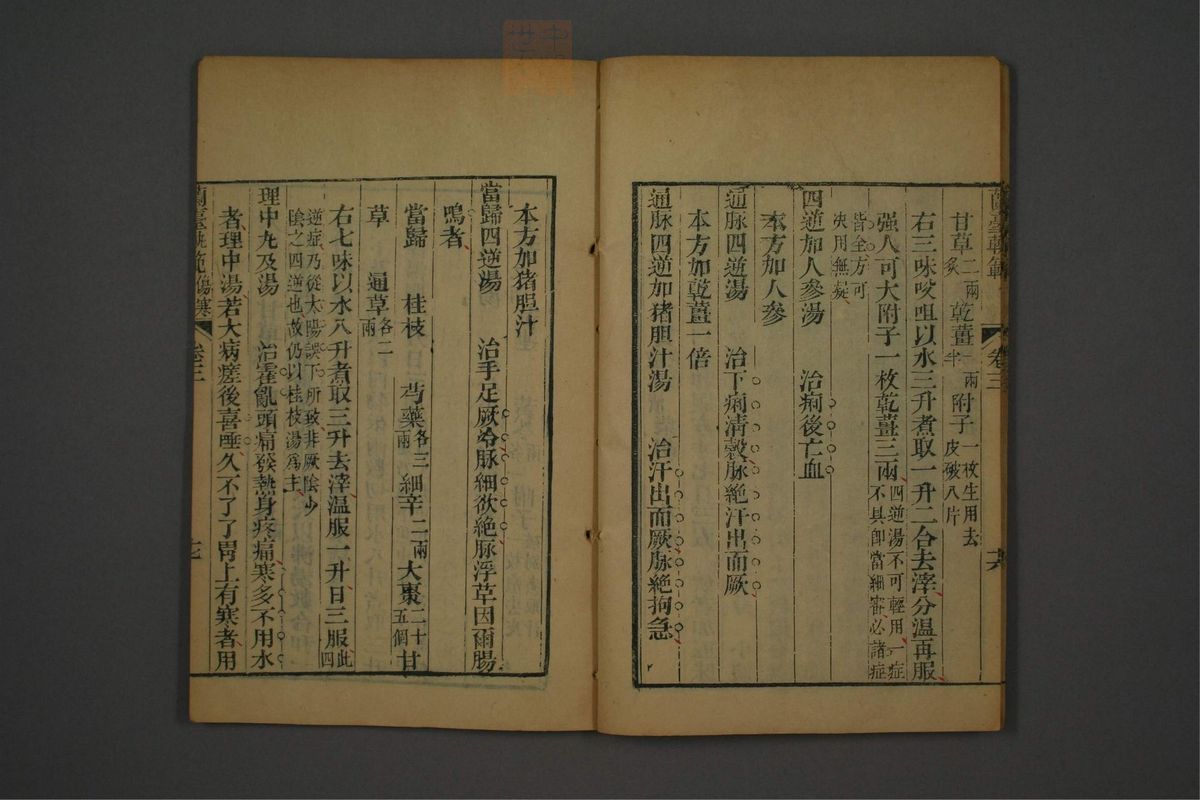 蘭臺軌範 卷三
甘草二兩炙 乾薑一兩半 附子一枚生用去皮破八片
右三味㕮咀以水三升煮取一升二合去滓分溫再服
强人可大附子一枚乾薑三兩四逆湯不可輕用一症不具卽當細審必諸症
皆全方可決用無疑
四逆加人參湯 治痢後亡血
本方加人參
通脉四逆湯 治下痢清穀脉絕汗出而厥
本方加乾薑一倍
通脉四逆加猪胆汁湯 治汗出而厥脉絕拘急
本方加猪胆汁
當歸四逆湯 治手足厥冷脉細欲絕脉浮革因爾腸
鳴者
當歸 桂枝 芍藥各三兩 細辛二兩 大棗二十五個 甘
草 通草各二兩
右七味以水八升煮取三升去滓溫服一升日三服此四
逆症乃從太陽誤下所致非厥陰少陰之四逆也故仍以桂枝湯爲主
理中丸及湯 治霍亂頭痛發熱身疼痛寒多不用水
者理中湯若大病瘥後喜唾久不了了胃上有寒者用
蘭臺軌範 傷寒 卷三